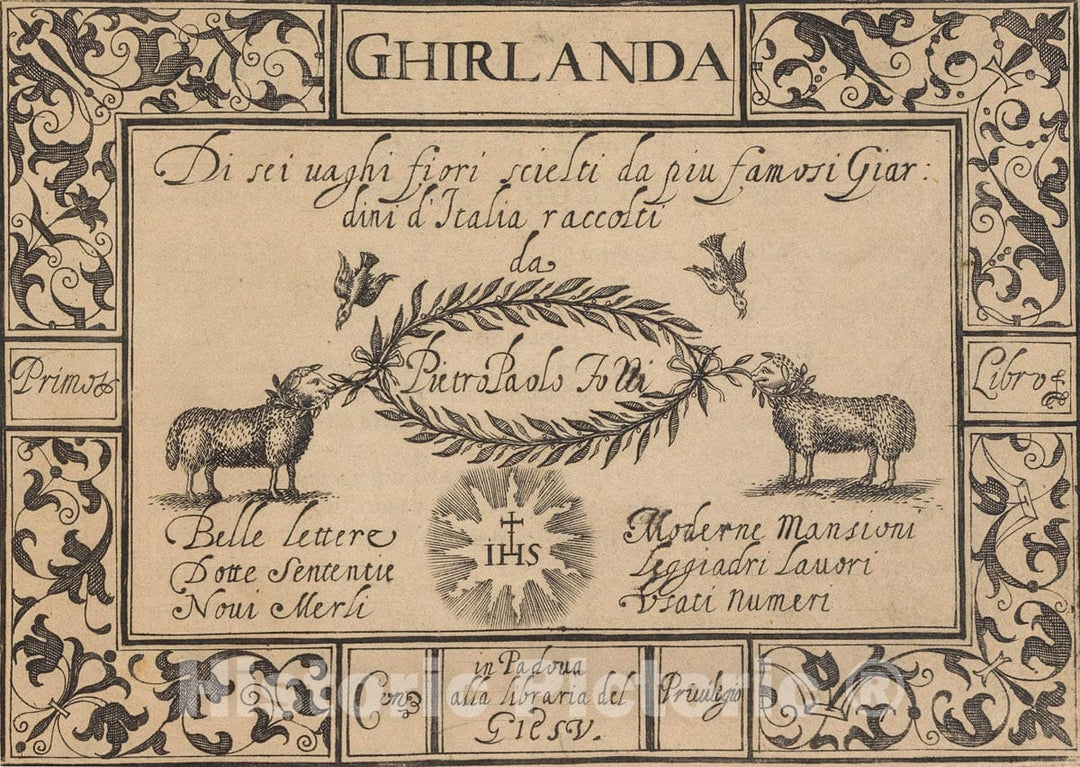 GHIRLANDA
Di sei vaghi fiori scielti da piu famosi Giar:
dini d'Italia raccolti
da
Pietro Paolo Tozzi
Primo
Libro
Belle lettere
Dotte Sententie
Novi Merli
IHS
Moderne Mansioni
Leggiadri Lavori
Usati Numeri
Con
in Padova
alla libraria del
GIESV.
Privilegio
Historic Pictoric ®